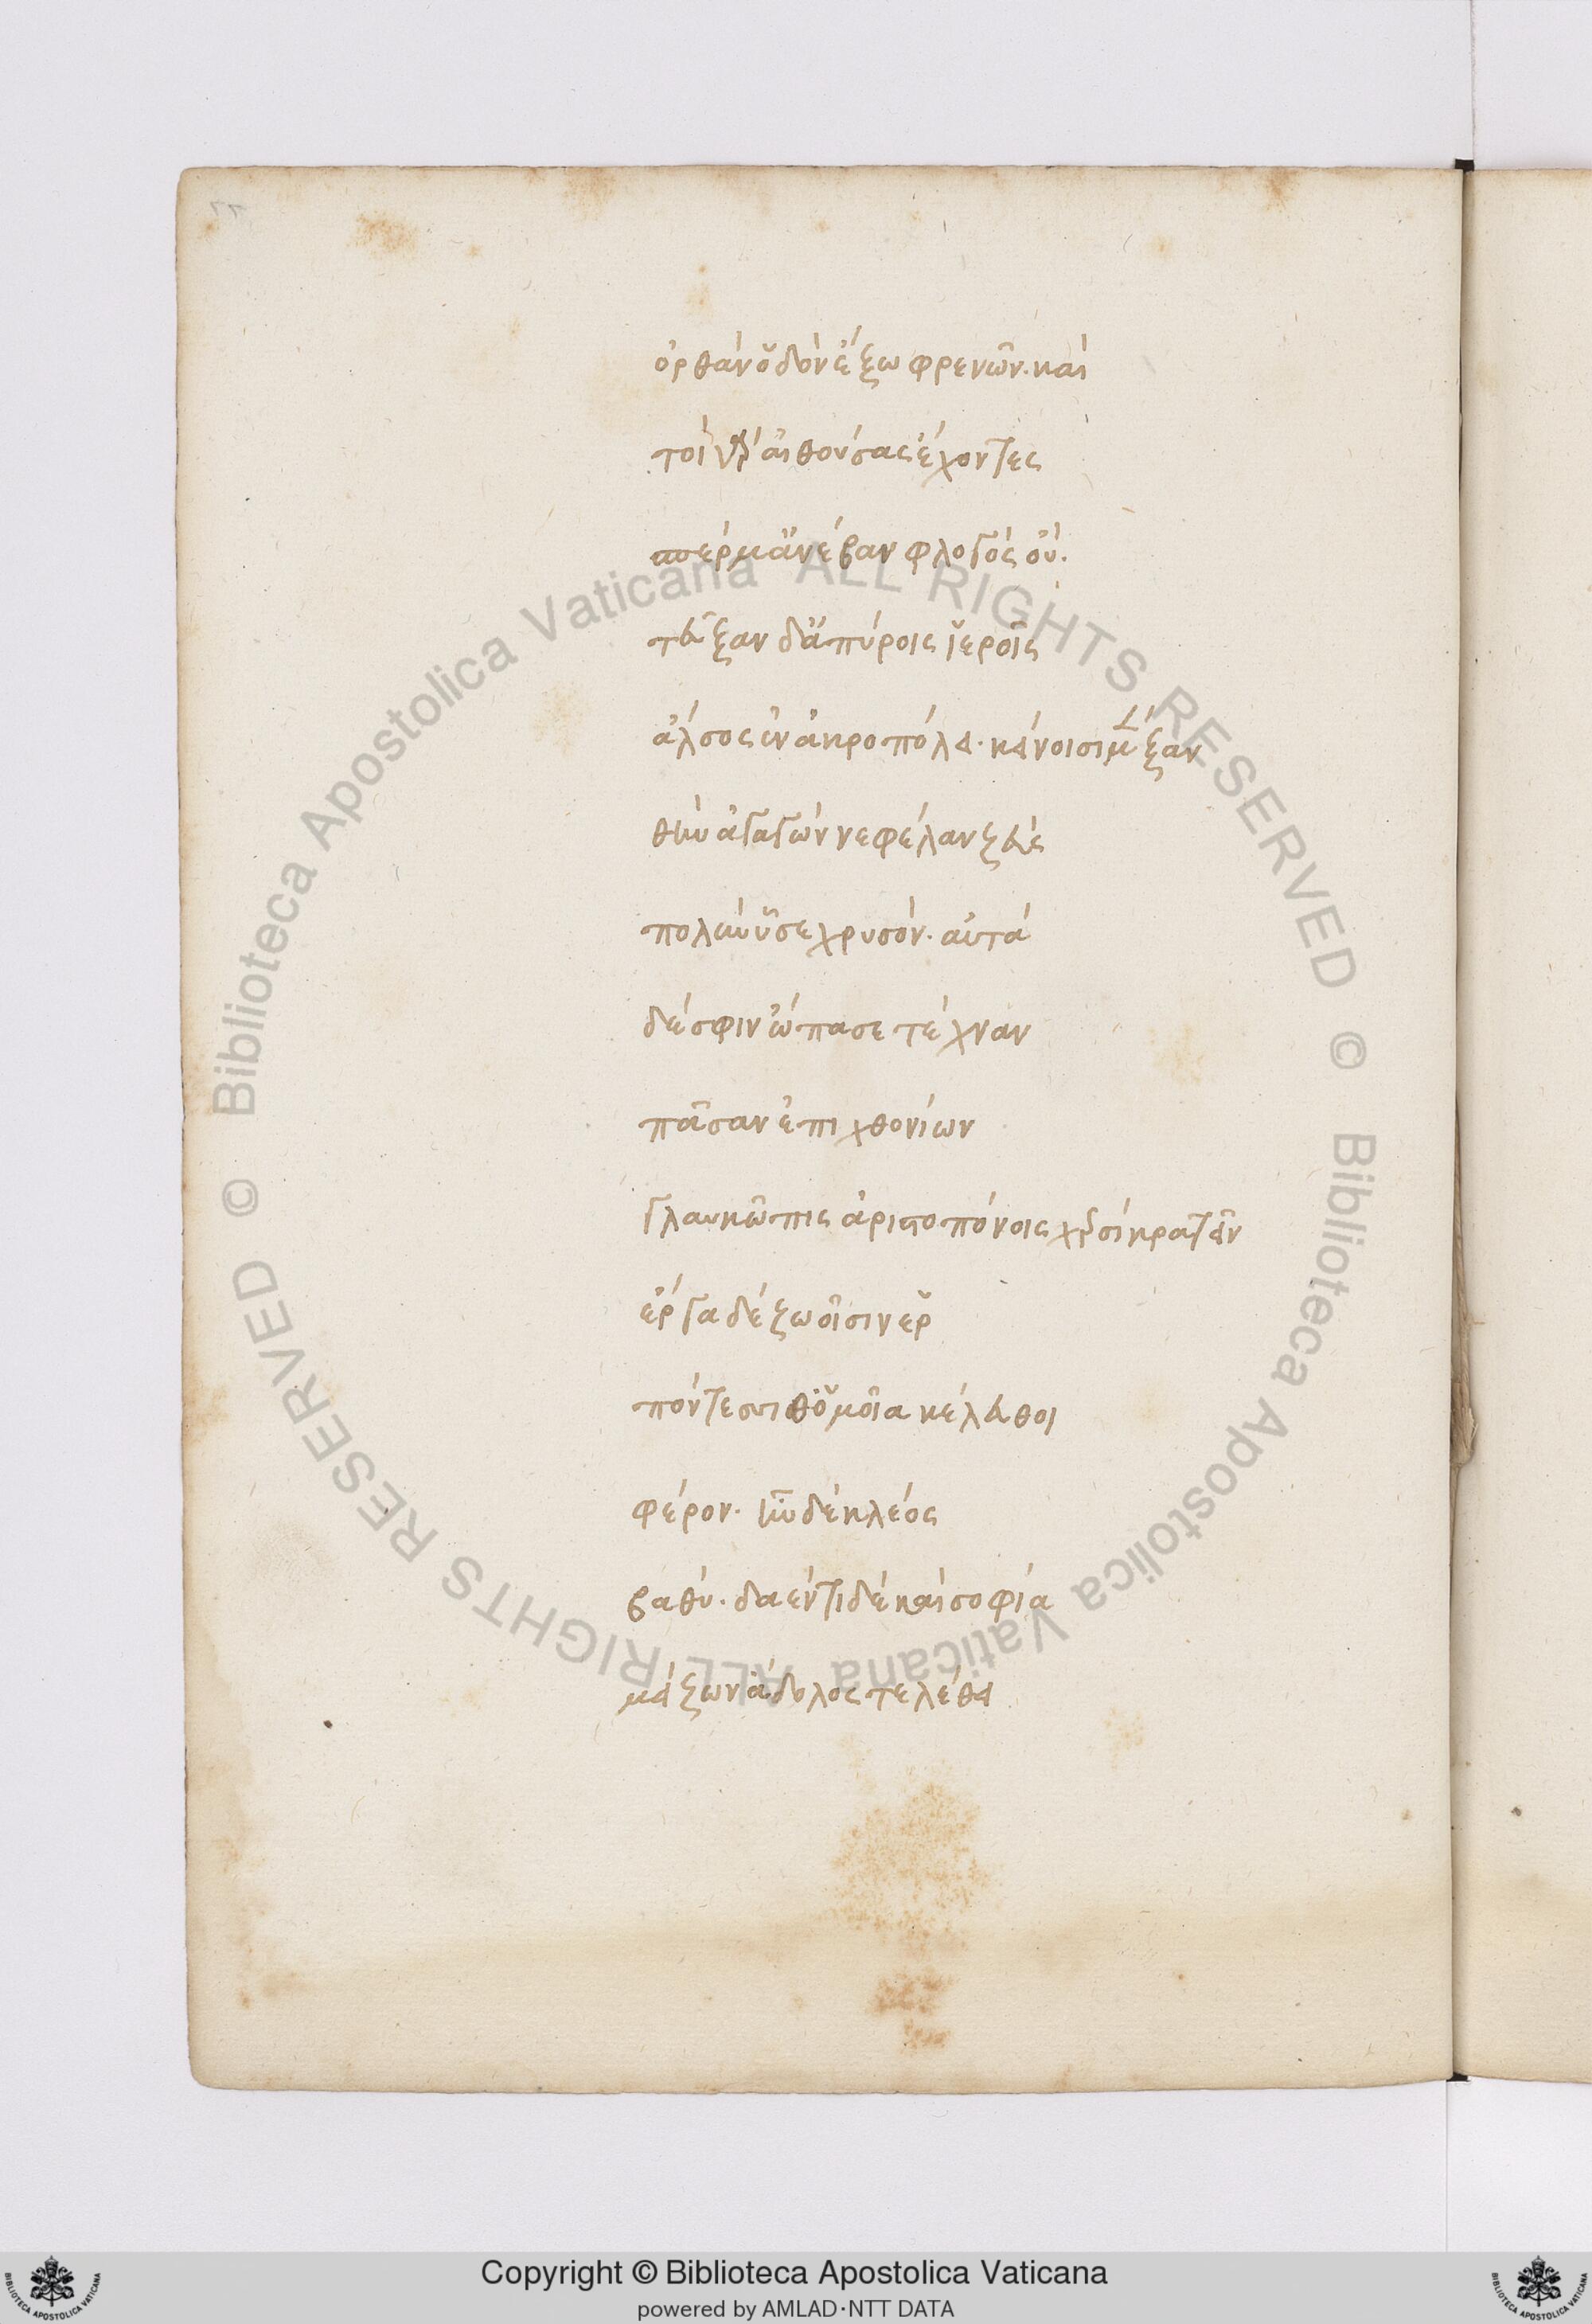 ὀρθὰν ὁδὸν ἔξω φρενῶν. καὶ
τοὶ γὰρ αἰθούσας ἔχοντες
σπέρμ' ἀνέβαν φλογὸς οὔ.
τεῦξαν δ' ἀπύροις ἱεροῖς
ἄλσος ἐν ἀκροπόλει. κείνοισι μὲν ξαν
θὴν ἀγαγὼν νεφέλαν ζεὺς
πολὺν ὗσε χρυσόν. αὐτὰ
δέ σφιν ὤπασε τέχναν
πᾶσαν ἐπιχθονίων
γλαυκῶπις ἀριστοπόνοις χερσὶ κρατεῖν
ἔργα δὲ ζωοῖσιν ἑρ
πόντεσσι θ' ὁμοῖα κέλευθοι
φέρον. ἦν δὲ κλέος
βαθύ. δαέντι δὲ καὶ σοφία
μείζων ἄδολος τελέθει
Biblioteca Apostolica Vaticana ALL RIGHTS RESERVED ©
Biblioteca Apostolica Vaticana ALL RIGHTS RESERVED ©
Copyright © Biblioteca Apostolica Vaticana
powered by AMLAD·NTT DATA